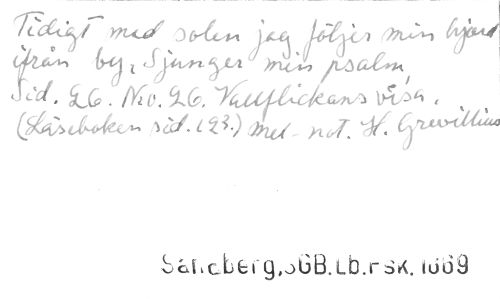 Tidigt med solen jag följer min hjord
ifrån by, Sjunger min psalm
Sid. 26. No. 26. Vallflickans visa.
(Läseboken sid. 193.) mel- not. H. Grevillius
Sandberg, SGB. Lb. Fsk. 1869